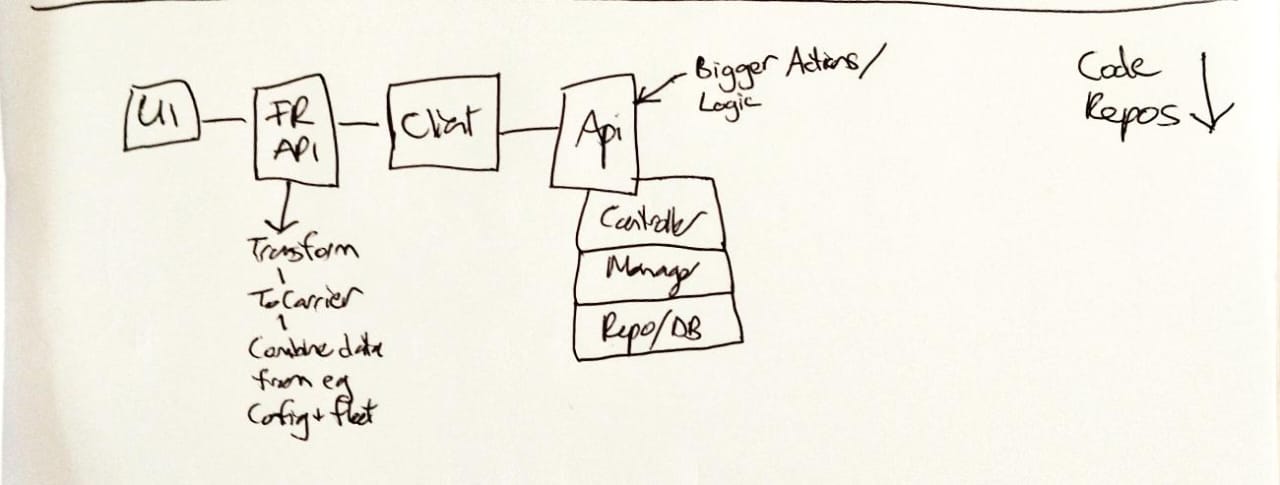 UI
FR
API
Client
Api
Bigger Actions/
Logic
Code
Repos
Controller
Manager
Repo/DB
Transform
To Carrier
Combine data
from eg
Config + fleet